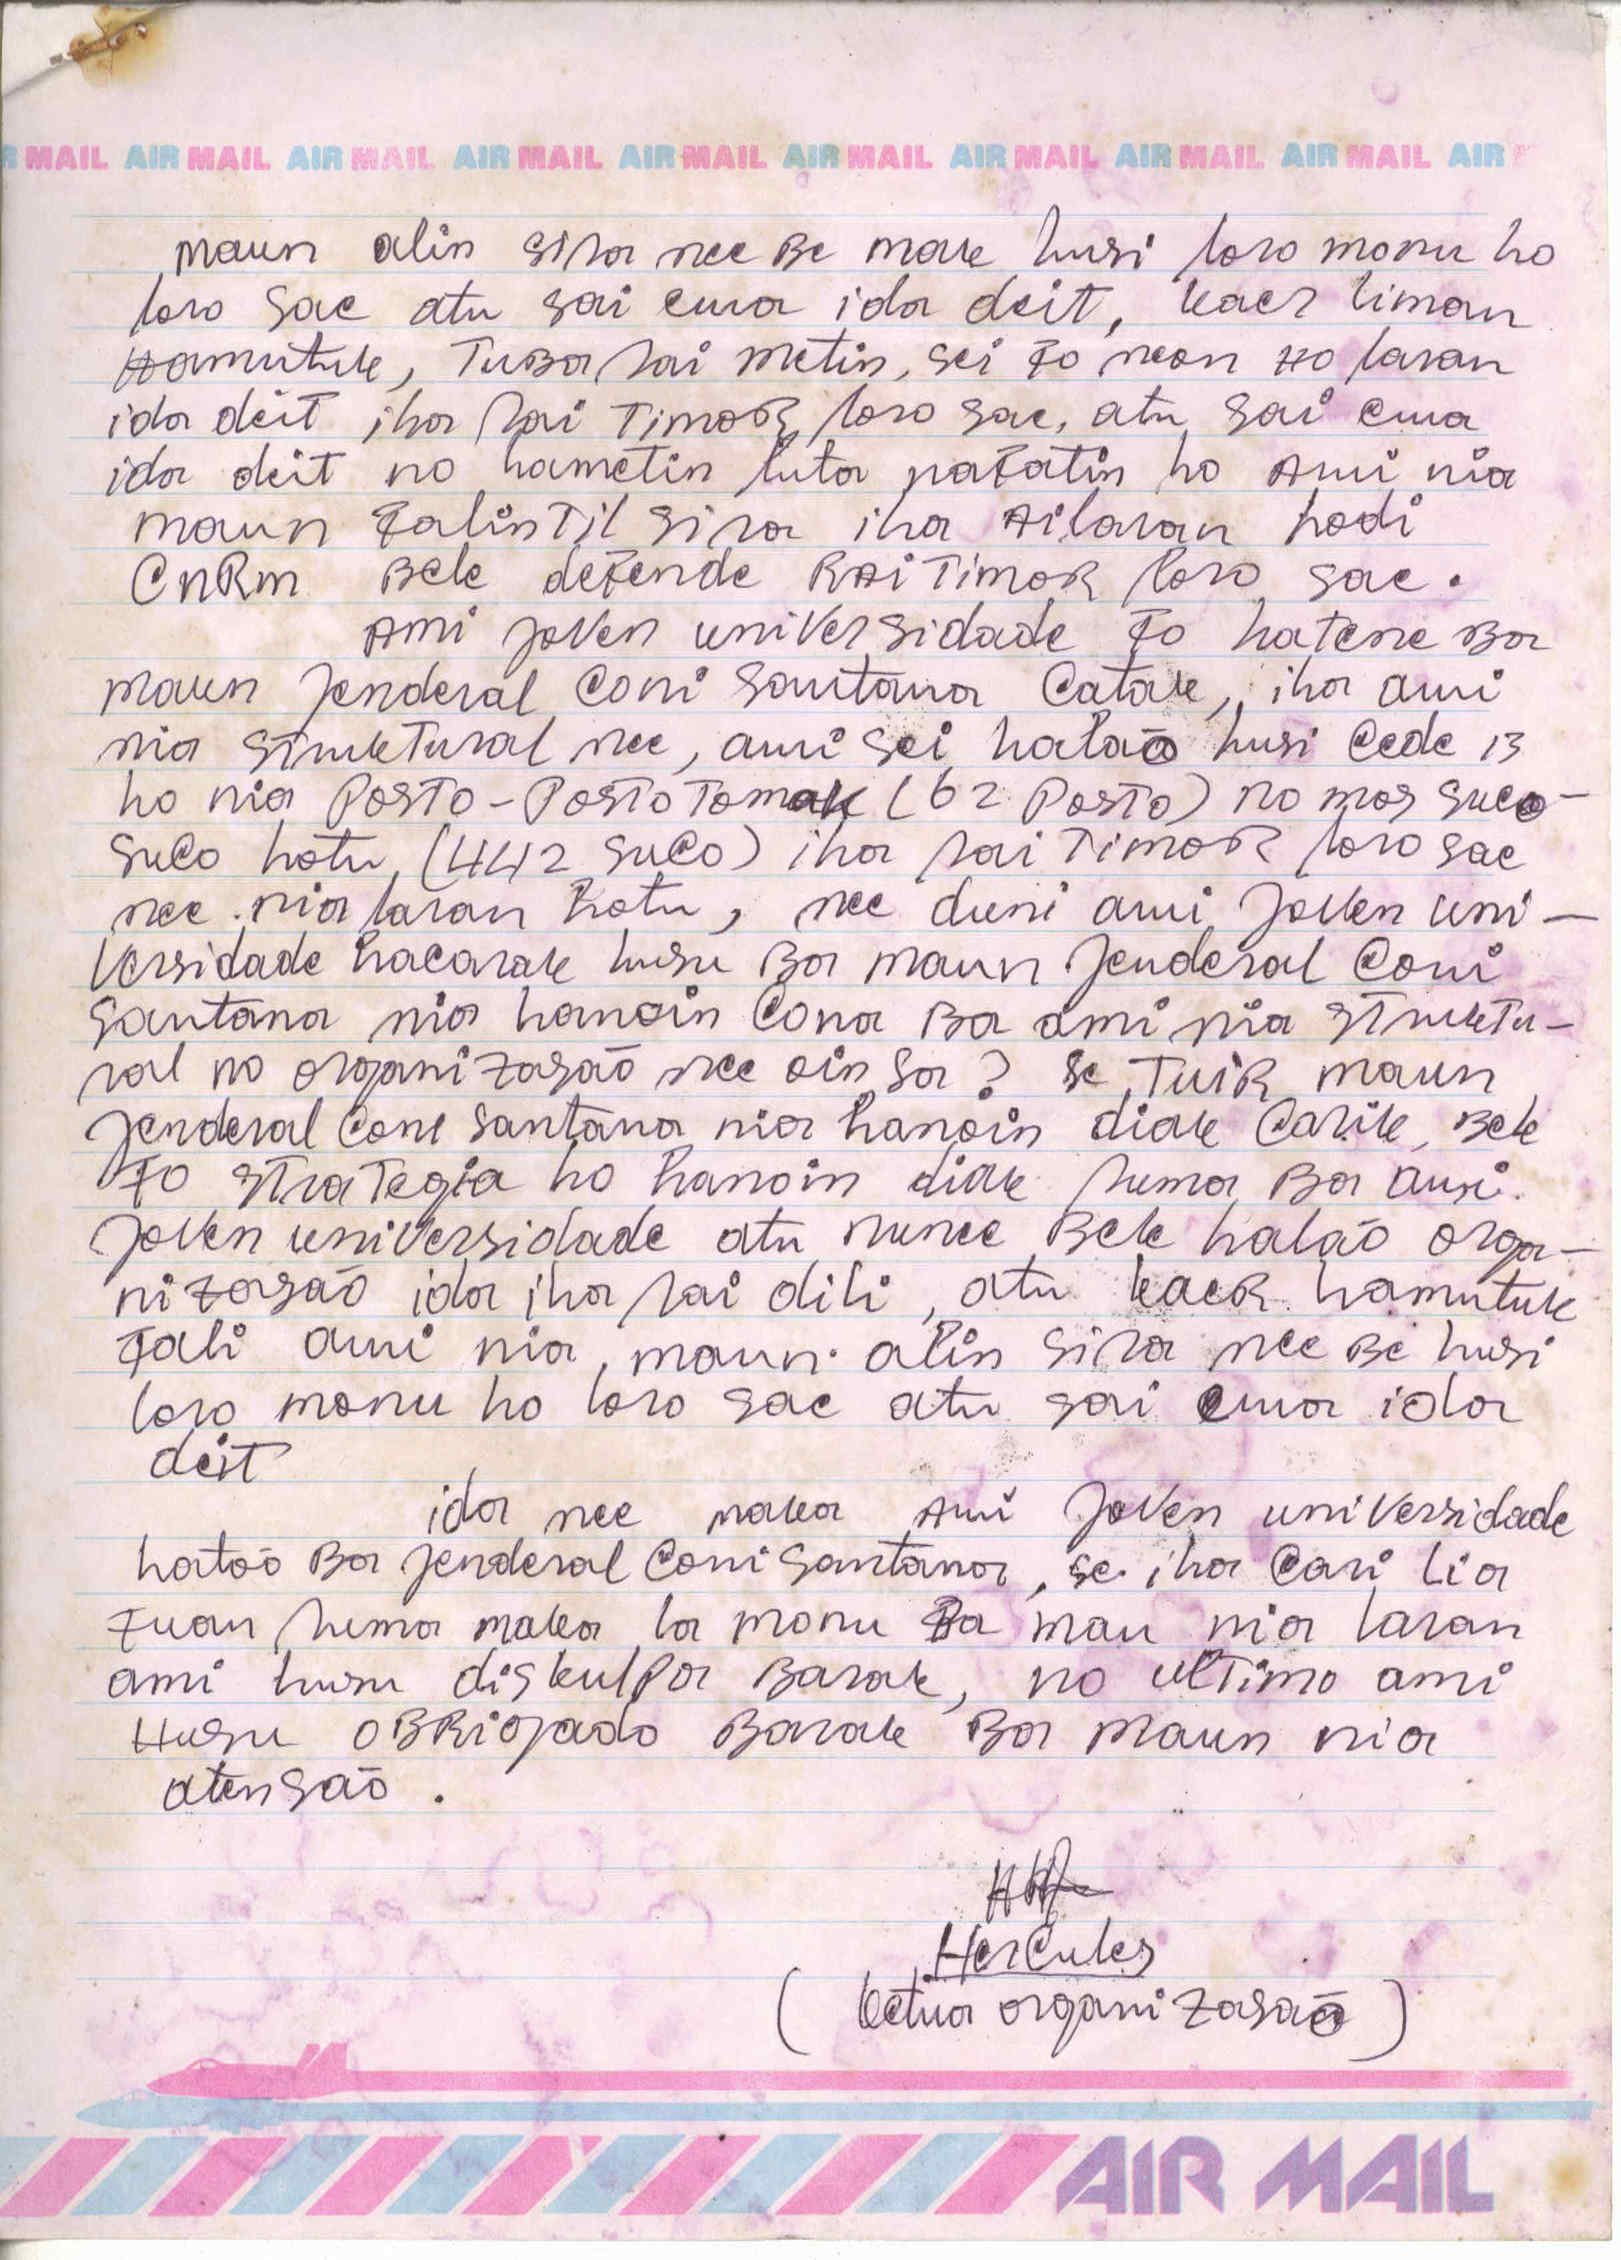 AIR MAIL AIR MAIL AIR MAIL AIR MAIL AIR MAIL AIR MAIL AIR MAIL AIR MAIL AIR MAIL AIR
maun alin sira nee Be mak husi loro monu ho
loro sae atu sai ema ida deit, kaer liman
Hamutuk, TuBa rai metin, sei Fo neon Ho laran
ida deit iha rai TimoR loro sae, atu sai ema
ida deit no hametin luta nafatin ho Ami nia
maun FalinTil sira iha Ailaran hodi
CnRm Bele defende RAi TimoR loro sae.
Ami joven universidade Fo hatene Ba
maun jenderal Coni Santana Catak, iha ami
nia strukTural nee, ami sei halaõ husi Cede 13
ho nia PosTo-PosTo Tomak (62 PosTo) no mos suco-
suCo hotu (442 suCo) iha rai TimoR loro sae
nee nia laran hotu, nee duni ami joven uni-
versidade hacarak husu Ba maun jenderal Coni
Santana nia hanoin Cona Ba ami nia STruktu-
ral no organizasaõ nee oin sa? se TuiR maun
jenderal Coni Santana nia hanoin diak Carik, Bele
Fo STraTegia ho hanoin diak ruma Ba ami
joven universidade atu nunee Bele halaõ orga-
nizasaõ ida iha rai dili, atu kaeR hamutuk
Fali ami nia, maun alin sira nee Be husi
loro monu ho loro sae atu sai ema ida
deit
ida nee maka Ami joven universidade
hatoõ Ba jenderal Coni Santana, se iha Cari lia
Fuan ruma maka la monu Ba mau nia laran
ami husu diskulpa Barak, no ulTimo ami
Husu oBRiGado Barak Ba maun nia
atensaõ.
HerCules
( ketua organizasaõ )
AIR MAIL